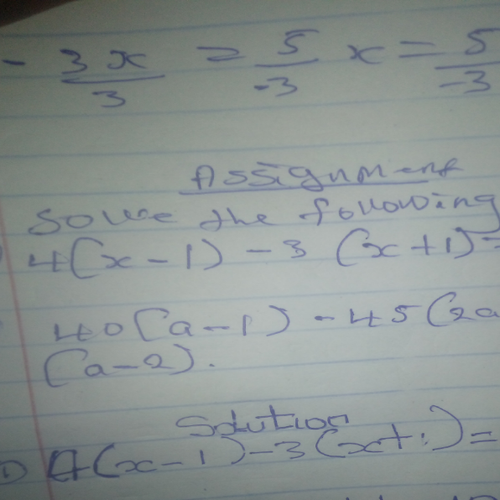 - 3x/3 = 5/-3 x = 5/-3
Assignment
Solve the following
4(x-1) - 3 (x+1) =
40(a-1) - 45(2a
(a-2).
Solution
① 4(x-1)-3(x+1)=